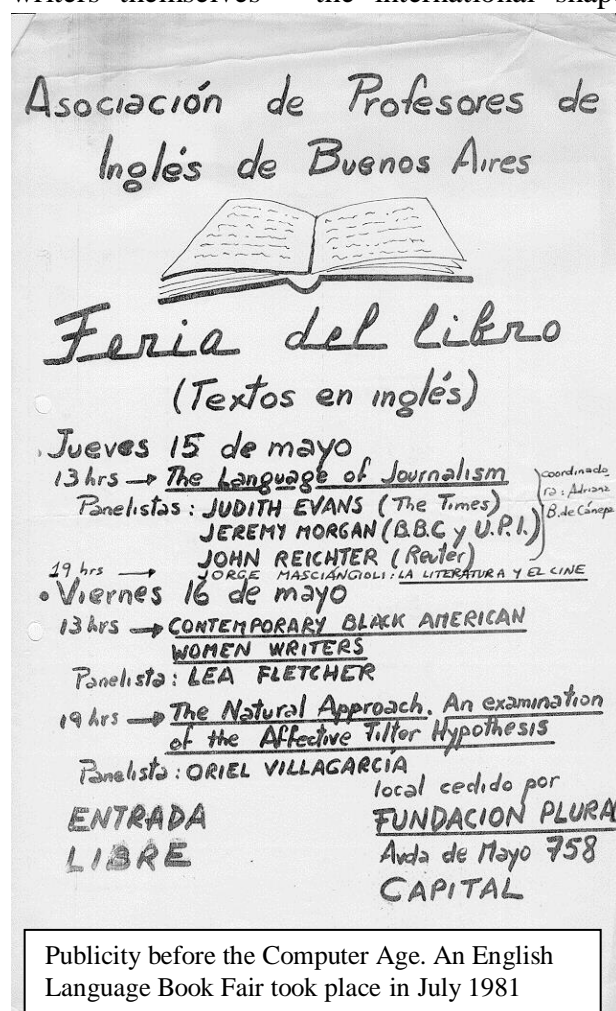 writers themselves the international
Asociación de Profesores de
Inglés de Buenos Aires
Feria del libro
(Textos en inglés)
Jueves 15 de mayo
13 hrs → The Language of Journalism
Panelistas: JUDITH EVANS (The Times)
JEREMY MORGAN (B.B.C y U.P.I.)
JOHN REICHTER (Reuter)
coordinado
ra: Adriana
B. de Cánepa
19 hrs → JORGE MASCIÁNGIOLI: LA LITERATURA Y EL CINE
• Viernes 16 de mayo
13 hrs → CONTEMPORARY BLACK AMERICAN
WOMEN WRITERS
Panelista: LEA FLETCHER
19 hrs → The Natural Approach. An examination
of the Affective Filter Hypothesis
Panelista: ORIEL VILLAGARCÍA
ENTRADA
LIBRE
local cedido por
FUNDACION PLURAL
Avda de Mayo 758
CAPITAL
Publicity before the Computer Age. An English
Language Book Fair took place in July 1981